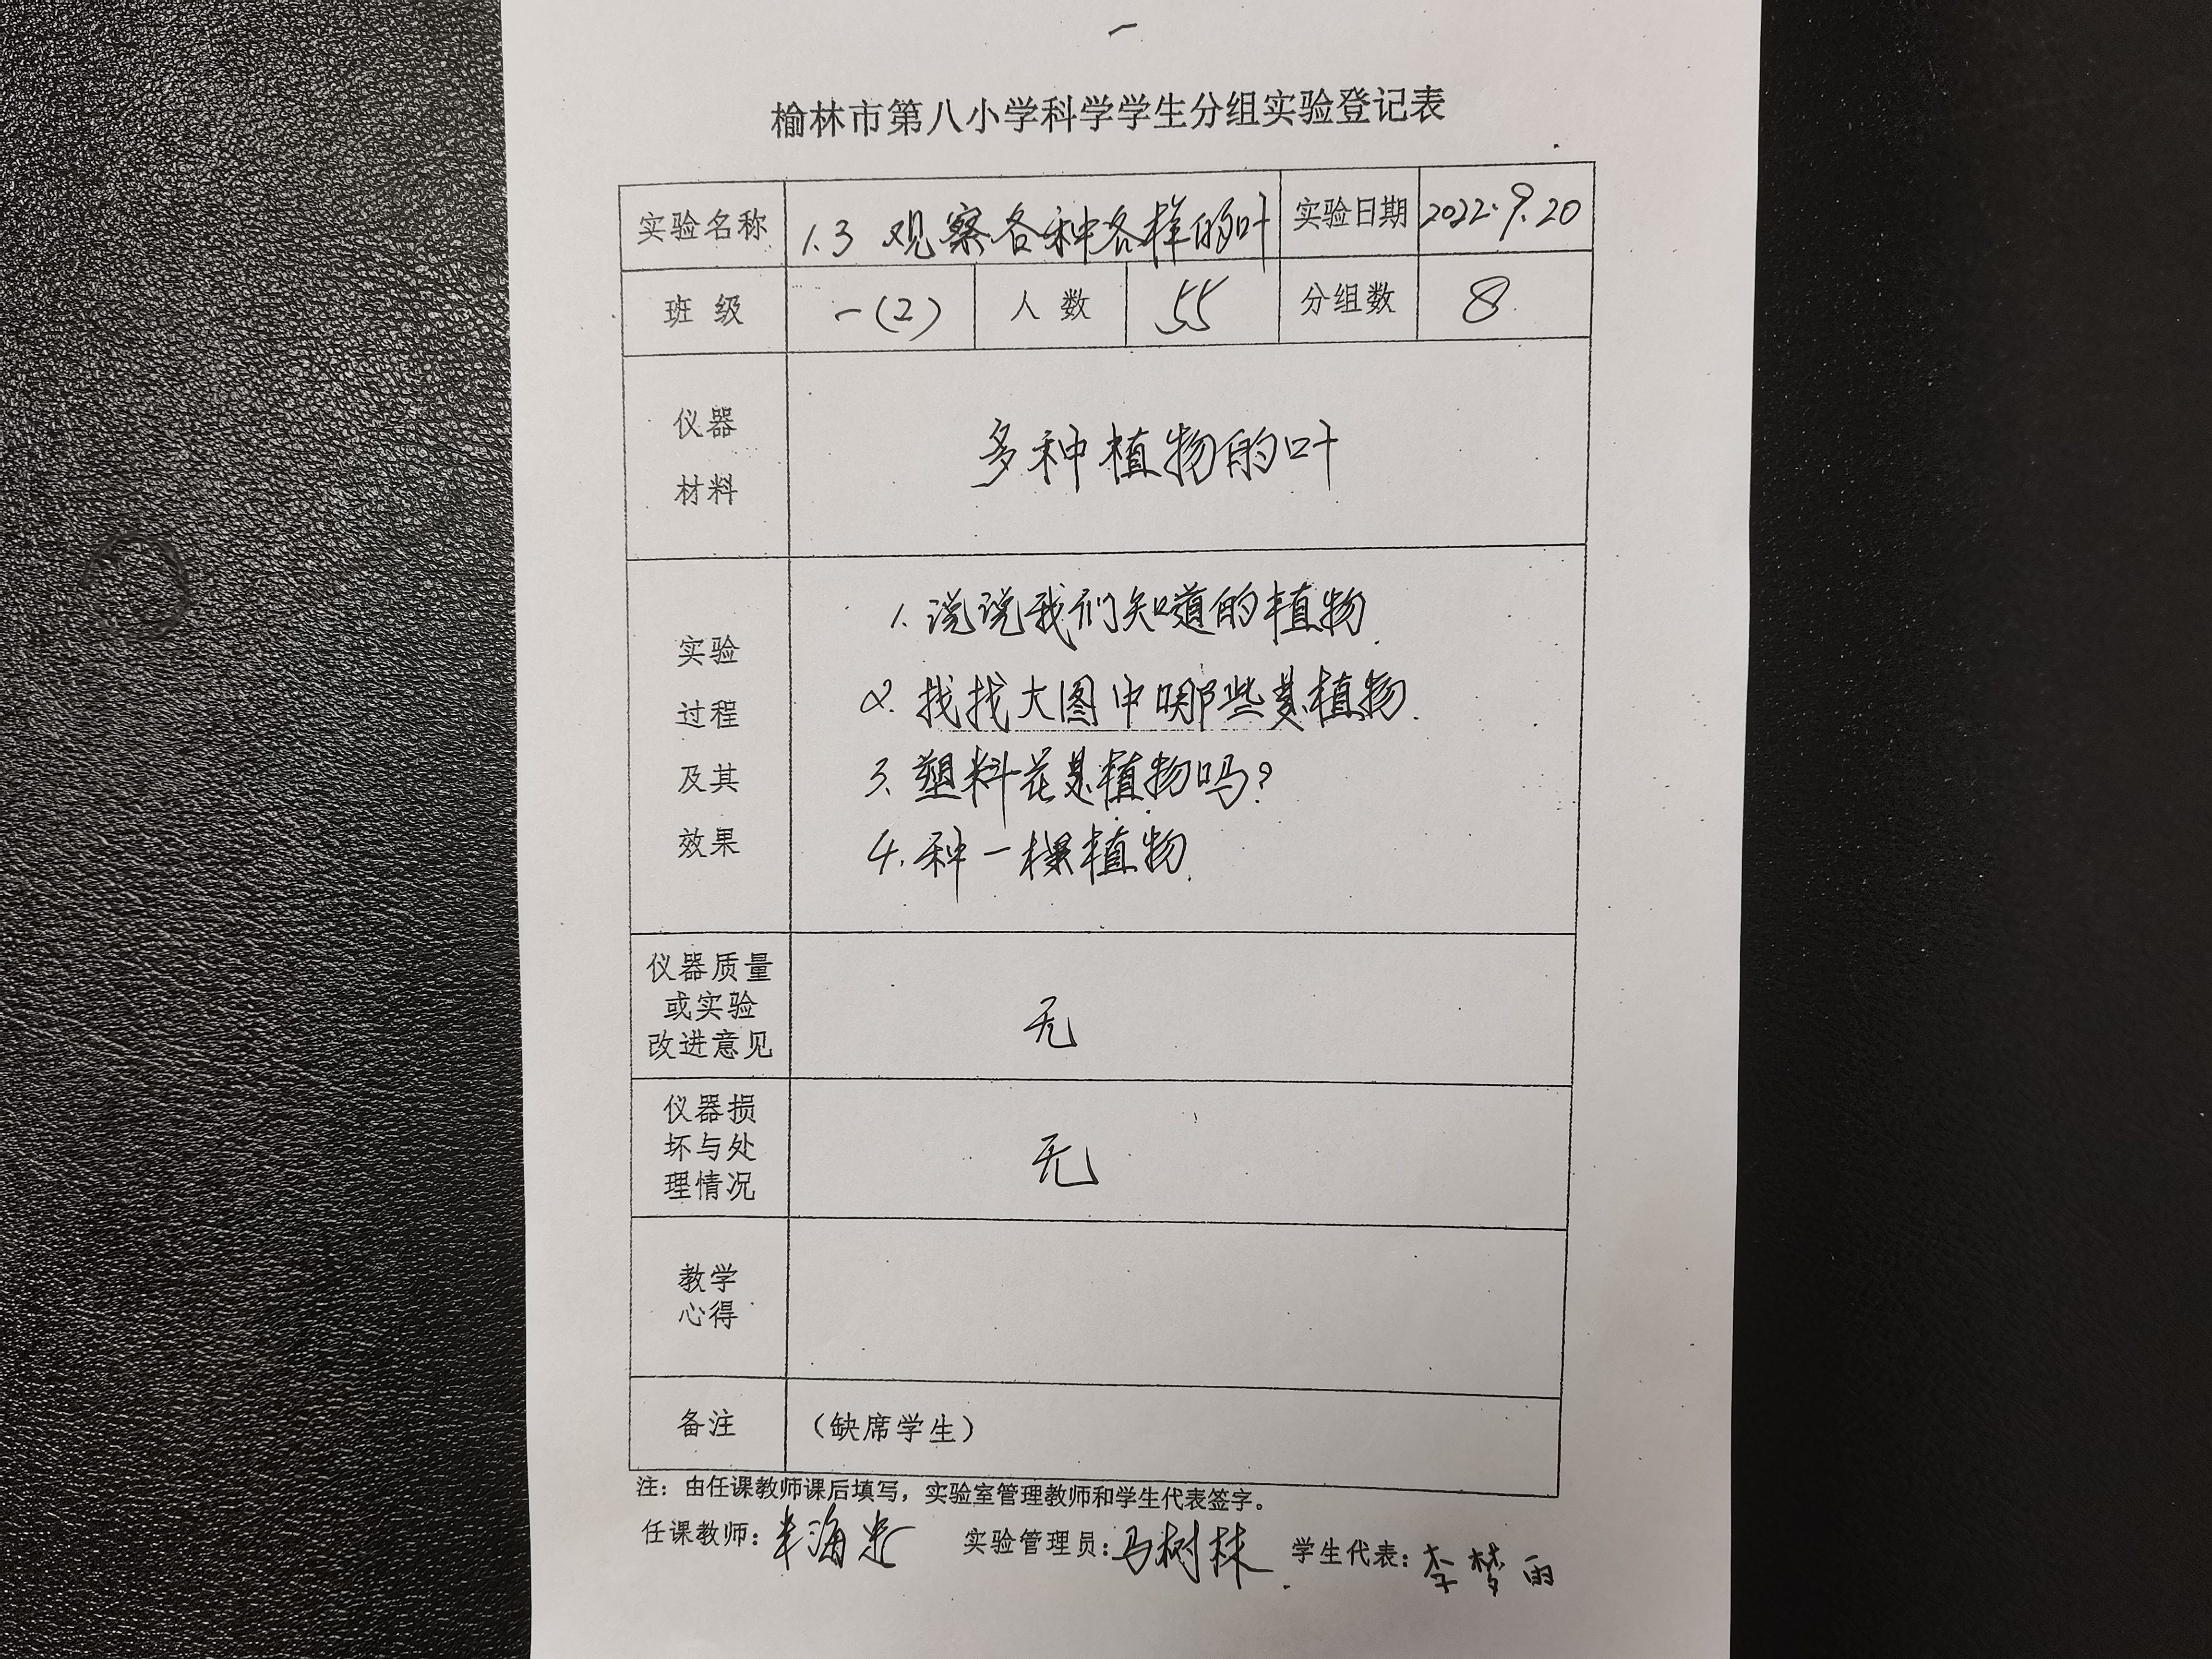 一
榆林市第八小学科学学生分组实验登记表
实验名称 1.3 观察各种各样的叶 实验日期 2022.9.20
班 级 一(2) 人 数 55 分组数 8
仪器
材料
多种植物的叶
实验
过程
及其
效果
1. 说说我们知道的植物.
2. 找找大图中哪些是植物.
3. 塑料花是植物吗?
4. 种一棵植物.
仪器质量
或实验
改进意见
无
仪器损
坏与处
理情况
无
教学
心得
备注 (缺席学生)
注：由任课教师课后填写，实验室管理教师和学生代表签字。
任课教师: 海 实验管理员: 马树林 学生代表: 李梦雨